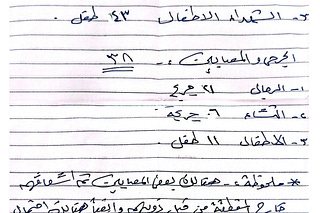 ٣- الشهداء الاطفال ٤٣ طفل.
الجرحى والمصابين :- ٣٨
١- الرجال ٢١ جريح
٢- النساء ٠٦ جريحة
٣- الاطفال ١١ طفل.
* ملحوظة :- هنالك بعض المصابين تم اسعافهم
من قبل ذويهم